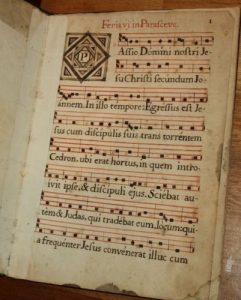 Feria vi in Parasceve. 1
PAssio Domini nostri Je-
su Christi secundum Jo-
annem. In illo tempore: Egressus est Je-
sus cum discipulis suis trans torrentem
Cedron, ubi erat hortus, in quem intro-
ivit ipse, & discipuli ejus. Sciebat au-
tem & Judas, qui tradebat eum, locum: qui-
a frequenter Jesus convenerat illuc cum